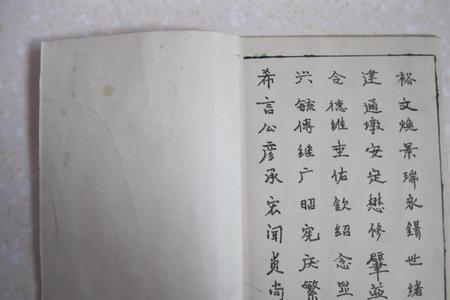 裕文焕景瑞永錫世緒
建通墩安定懋修肇
令德维垂佑钦绍念显
兴毓傅继广昭宪庆繁
希言公彦承宏闻贞尚